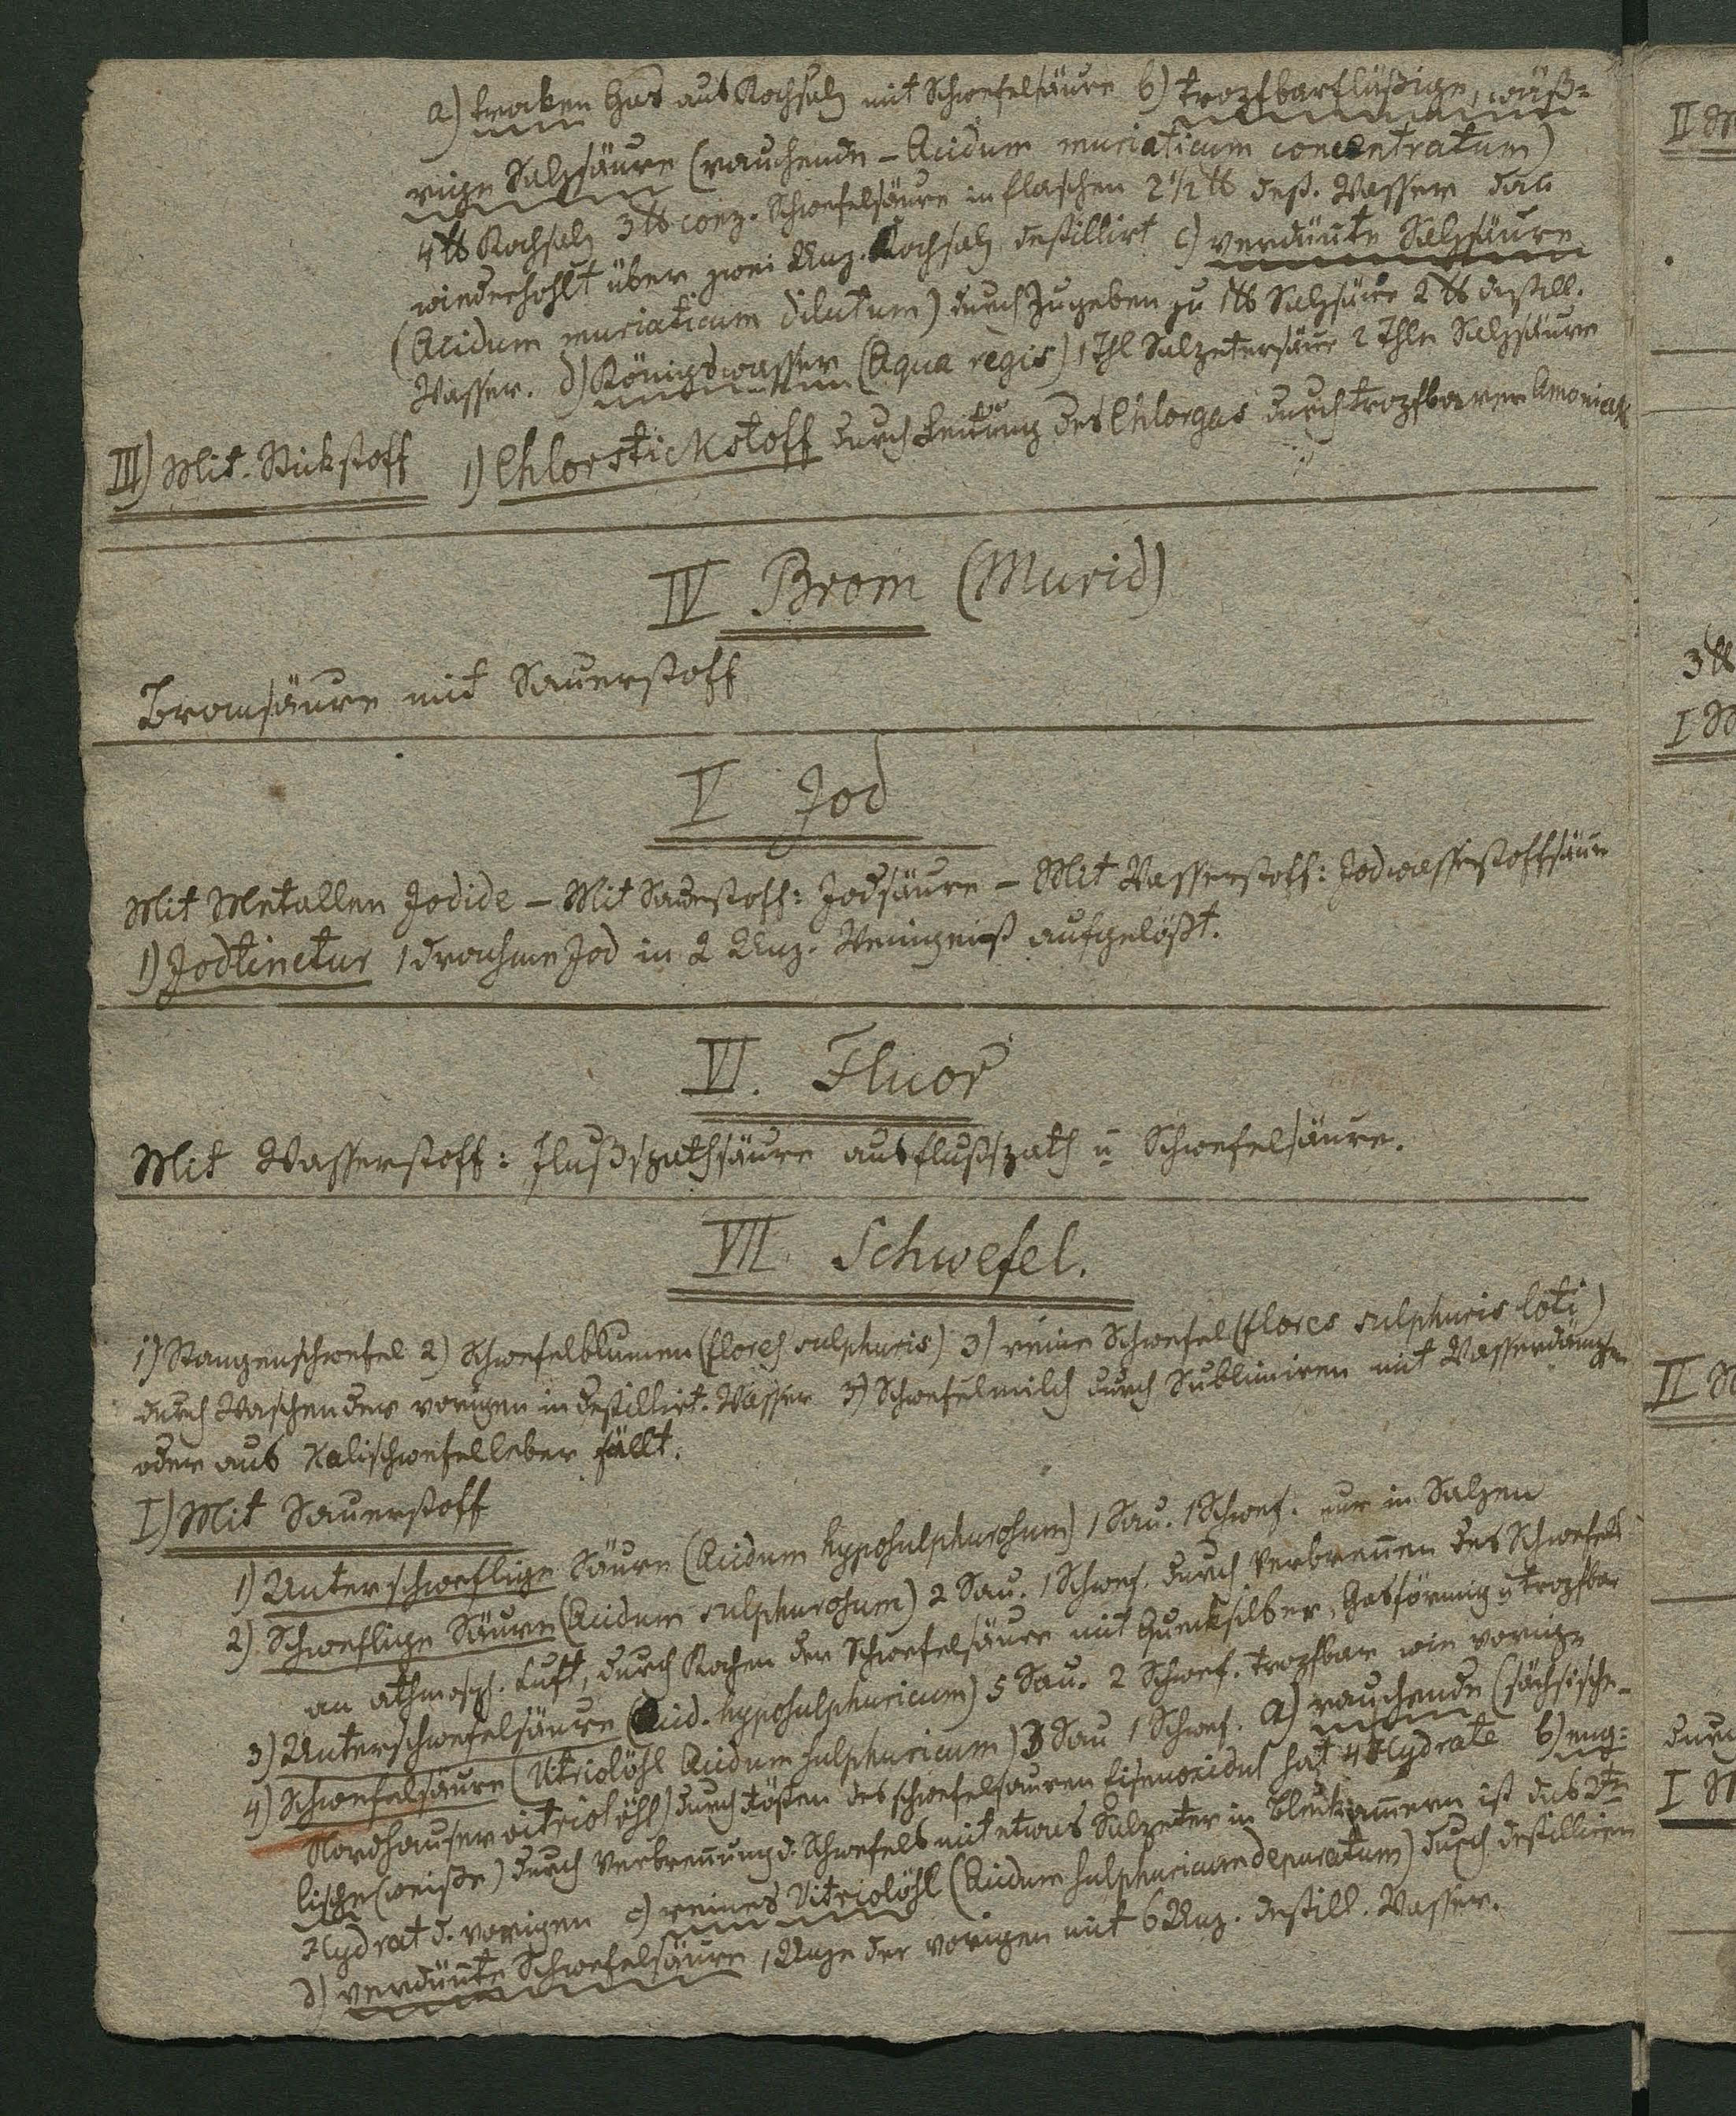 a) trocken Gas aus Kochsalz mit Schwefelsäure b) tropfbarflüßige, wäß-
rige Salzsäure (rauchende - Acidum muriaticum concentratum)
4 ℔ Kochsalz 3 ℔ conz. Schwefelsäure in flaschen 2 1/2 ℔ dest. Wasser das
wiederhohlt über zwei Unz. Kochsalz destillirt c) verdünte Salzsäure
(Acidum muriaticum dilutum) durch Zugeben zu 1 ℔ Salzsäure 2 ℔ destill.
Wasser. d) Königswasser (Aqua regis) 1 Thl Salpetersäure 2 Thle Salzsäure
III) Mit Stickstoff 1) Chlorstickstoff durch Leitung des Chlorgas durch tropfbaren Amoniak
IV Brom (Murid)
Bromsäure mit Sauerstoff
V Jod
Mit Metallen Jodide - Mit Sauerstoff: Jodsäure - Mit Wasserstoff: Jodwasserstoffsäure
1) Jodtinctur 1 drachme Jod in 2 Unz. Weingeist aufgelößt.
VI. Fluor
Mit Wasserstoff: Flußspathsäure aus flußspath u Schwefelsäure.
VII Schwefel.
1) Stangenschwefel 2) Schwefelblumen (flores sulphuris) 3) reine Schwefel (flores sulphuris loti)
durch Waschen der vorigen in destillirt. Wasser 3) Schwefelmilch durch Sublimiren mit Wasserdämpfen
oder aus Kalischwefelleber fällt.
I) Mit Sauerstoff
1) Unterschweflige Säure (Acidum hyposulphurosum) 1 Sau. 1 Schwef. nur in Salzen
2) Schweflige Säure (Acidum sulphurosum) 2 Sau. 1 Schwef. durch Verbrennen des Schwefels
an athmosph. Luft, durch Kochen der Schwefelsäure mit Quecksilber, Gasförmig u tropfbar
3) Unterschwefelsäure (Acid. hyposulphuricum) 5 Sau. 2 Schwef. tropfbar wie vorige
4) Schwefelsäure (Vitriolöhl Acidum sulphuricum) 3 Sau 1 Schwef. a) rauchende (sächsische-
Nordhauser vitriolöhl) durch Rösten des schwefelsauren Eisenoxidul hat 4 Hydrate b) eng-
lische (weiße) durch Verbrennung d. Schwefels mit etwas Salpeter in Bleikammern ist das 2te
Hydrat d. vorigen c) reines Vitriolöhl (Acidum sulphuricum depuratum) durch destilliren
d) verdünte Schwefelsäure 1 Unze der vorigen mit 6 Unz. destill. Wasser.
II M
3 ℔
I
II
durch
I